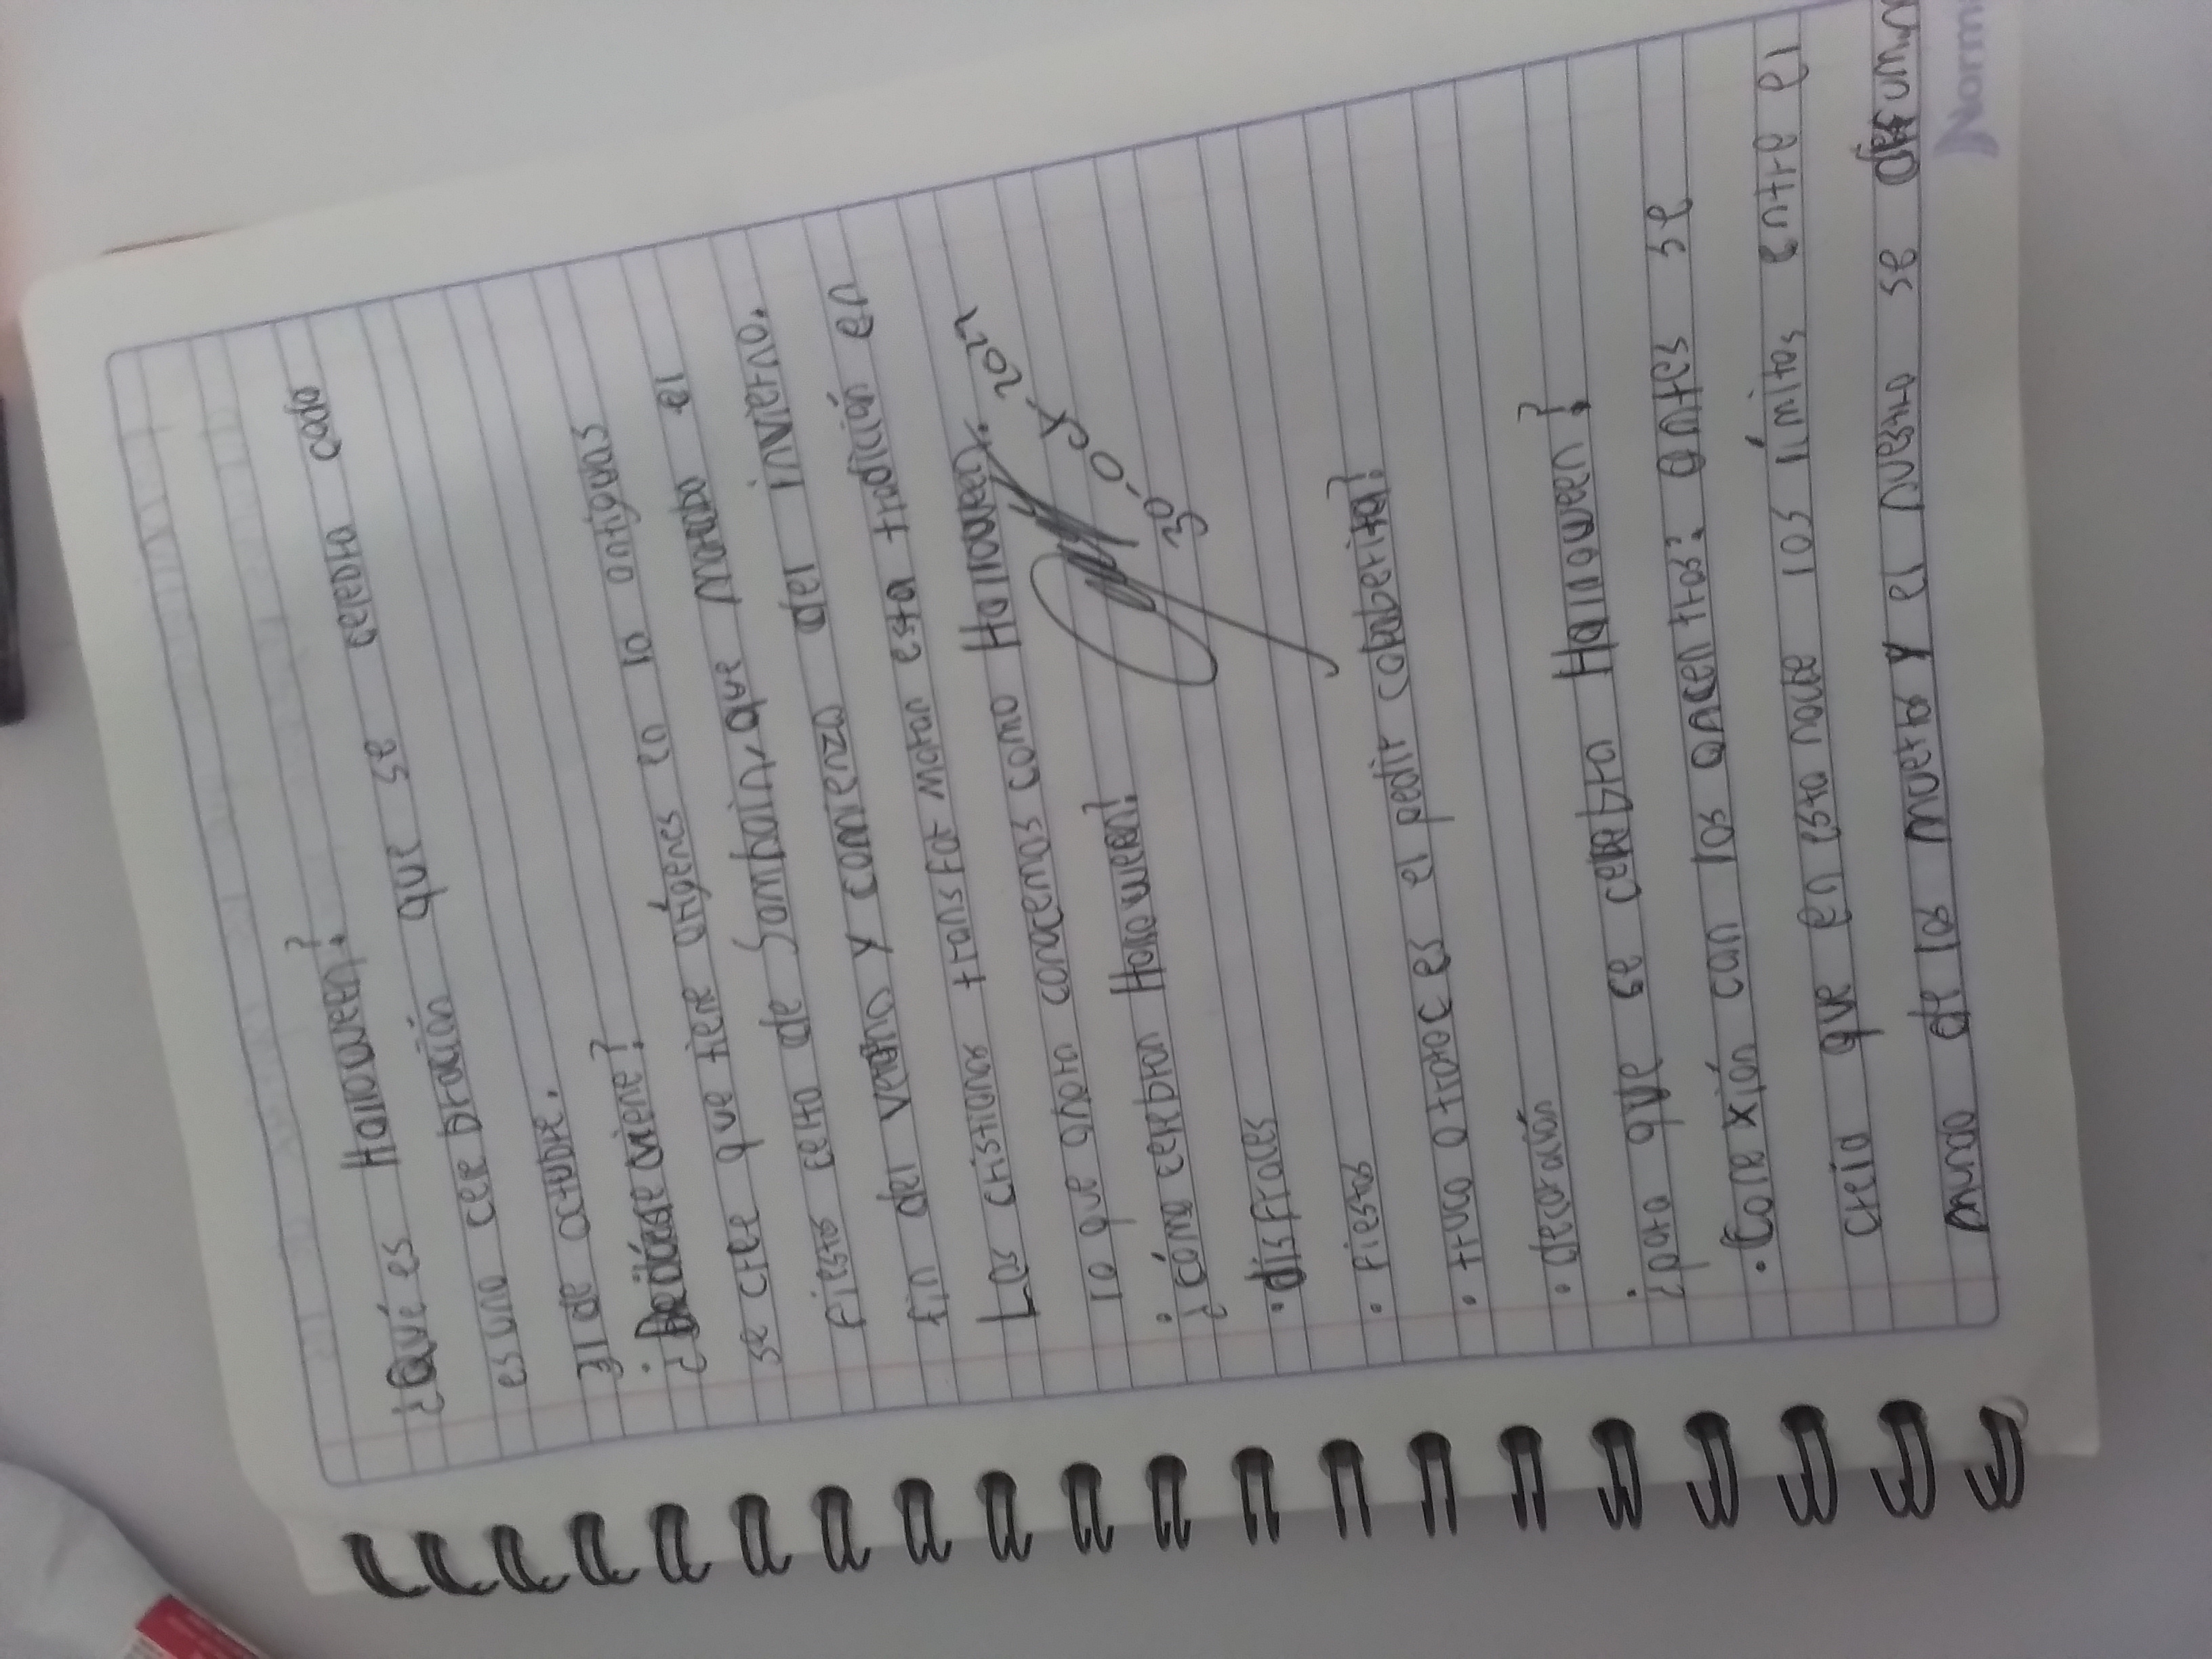 ¿Qué es Halloween?
es una cele bración que se celebra cada
31 de octubre.
¿De dónde viene?
se cree que tiene orígenes en la antiguas
fiestas celta de Samhain, que marcaba el
fin del verano y comienzo del invierno.
Los cristianos transformaron esta tradición en
lo que ahora conocemos como Halloween.
30-Oct-2024
¿cómo celebran Halloween?
• disfraces
• Fiestas
• truco o trato es el pedir
• decoración
¿para que se celebra Halloween?
• Cone xión con los ancentros: antes se
creia que en esta noche los límites entre el
mundo de los muertos y el nuestro se
Norma